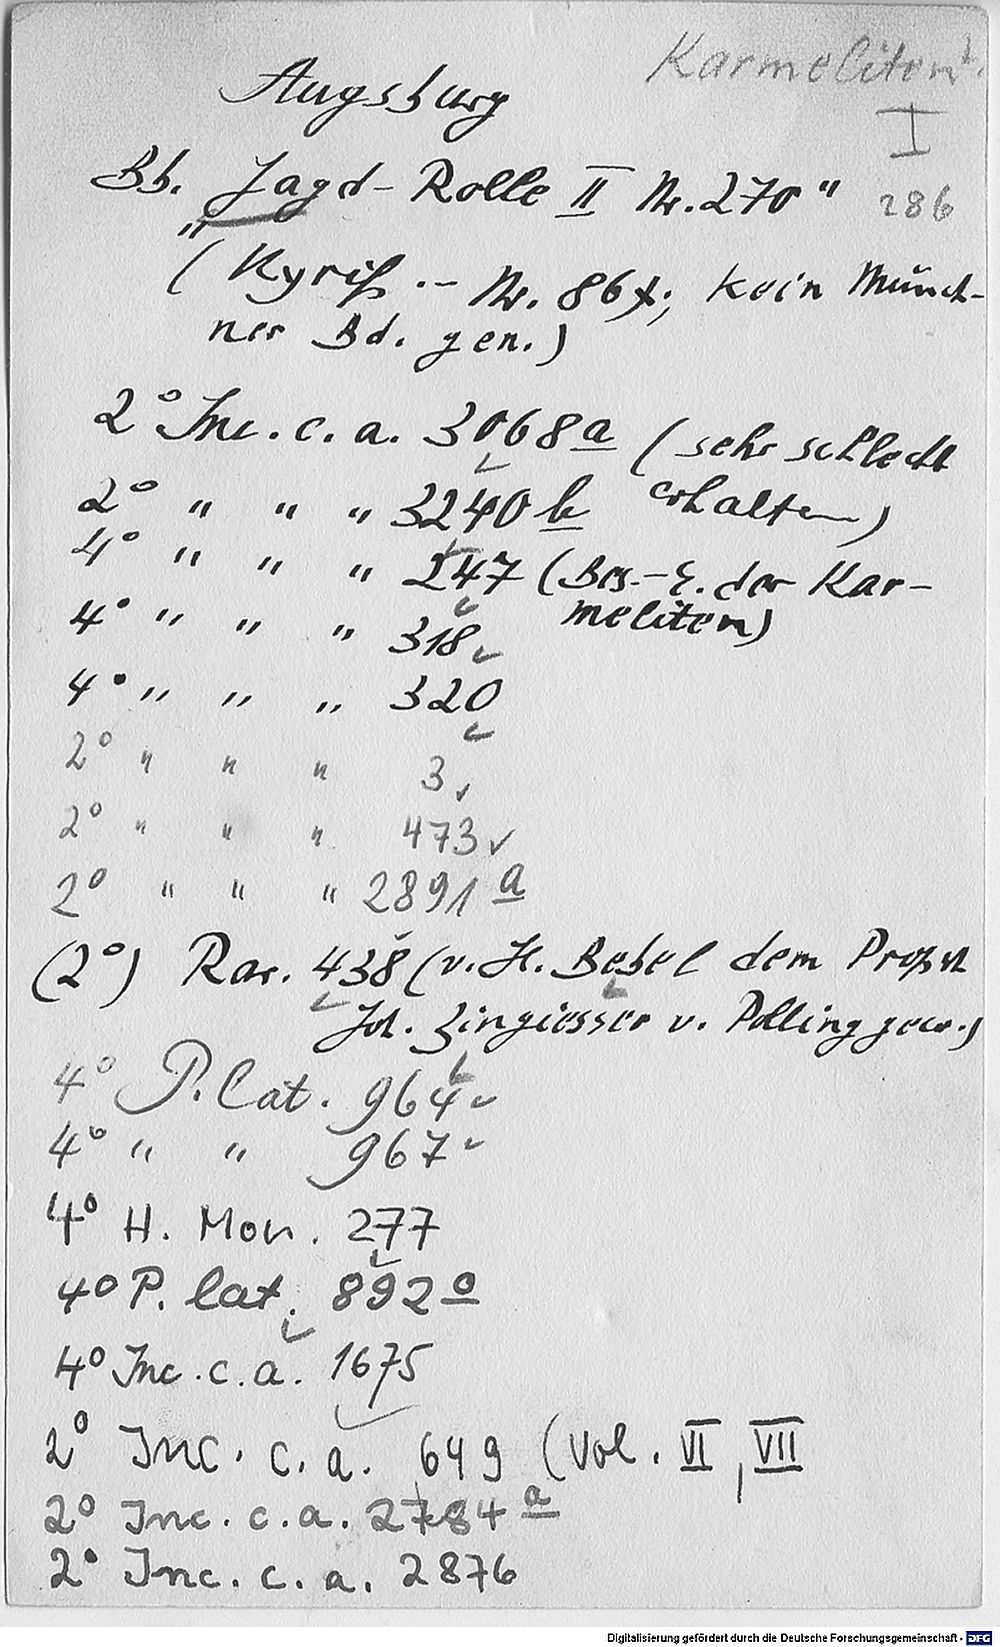 Karmeliten
I
Augsburg
Bb. "Jagd-Rolle II Nr. 270"
286
(Kyriß -- Nr. 86x; kein Münch-
ner Bd. gen.)
2° Inc. c. a. 3068 a (sehr schlecht
erhalten)
2° " " " 3240 b
4° " " " 247 (Bes.-E. der Kar-
meliten)
4° " " " 318
4° " " " 320
2° " " " 3
2° " " " 473
2° " " " 2891 a
(2°) Rar. 438 (v. H. Bebel dem Probst
Joh. Zingiesser v. Polling gew.)
4° P. lat. 964
4° " " 967
4° H. Mon. 277
4° P. lat. 892 o
4° Inc. c. a. 1675
2° Inc. c. a. 649 (Vol. VI, VII
2° Inc. c. a. 2784 a
2° Inc. c. a. 2876
Digitalisierung gefördert durch die Deutsche Forschungsgemeinschaft - DFG